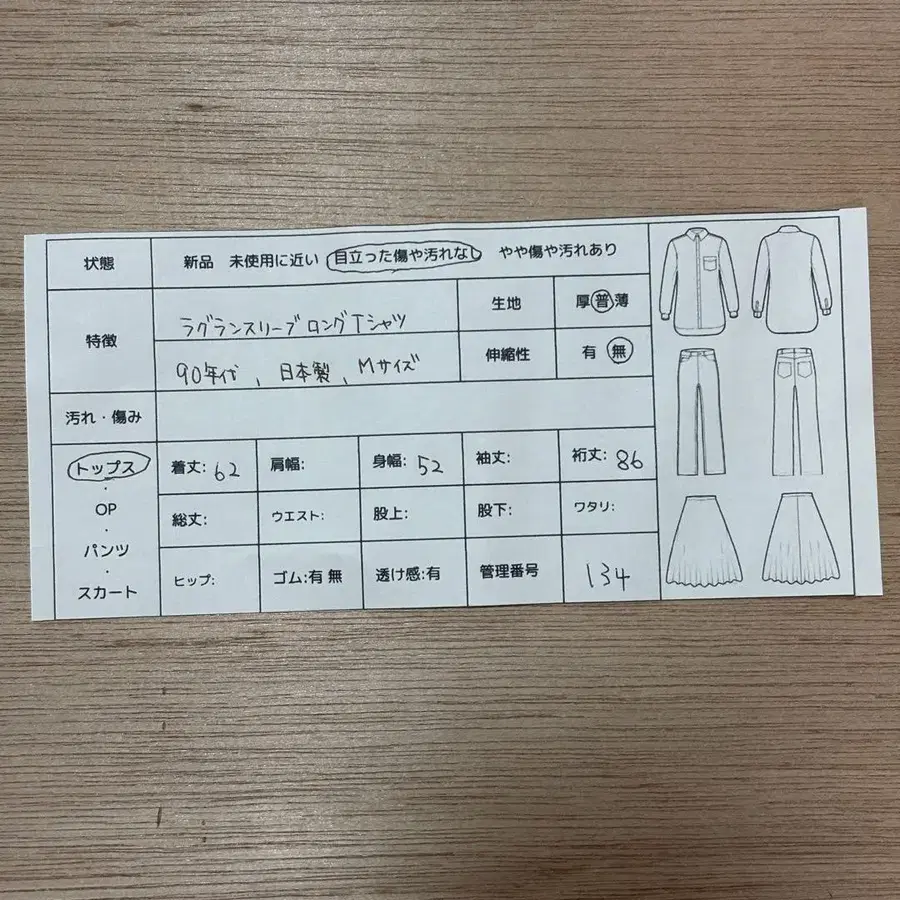 状態 新品 未使用に近い 目立った傷や汚れなし やや傷や汚れあり
特徴 ラグランスリーブロングTシャツ 生地 厚 普 薄
90年代、日本製、Mサイズ 伸縮性 有 無
汚れ・傷み
トップス 着丈: 62 肩幅: 身幅: 52 袖丈: 裄丈: 86
・
OP 総丈: ウエスト: 股上: 股下: ワタリ:
・
パンツ
・
スカート ヒップ: ゴム:有 無 透け感:有 管理番号 134